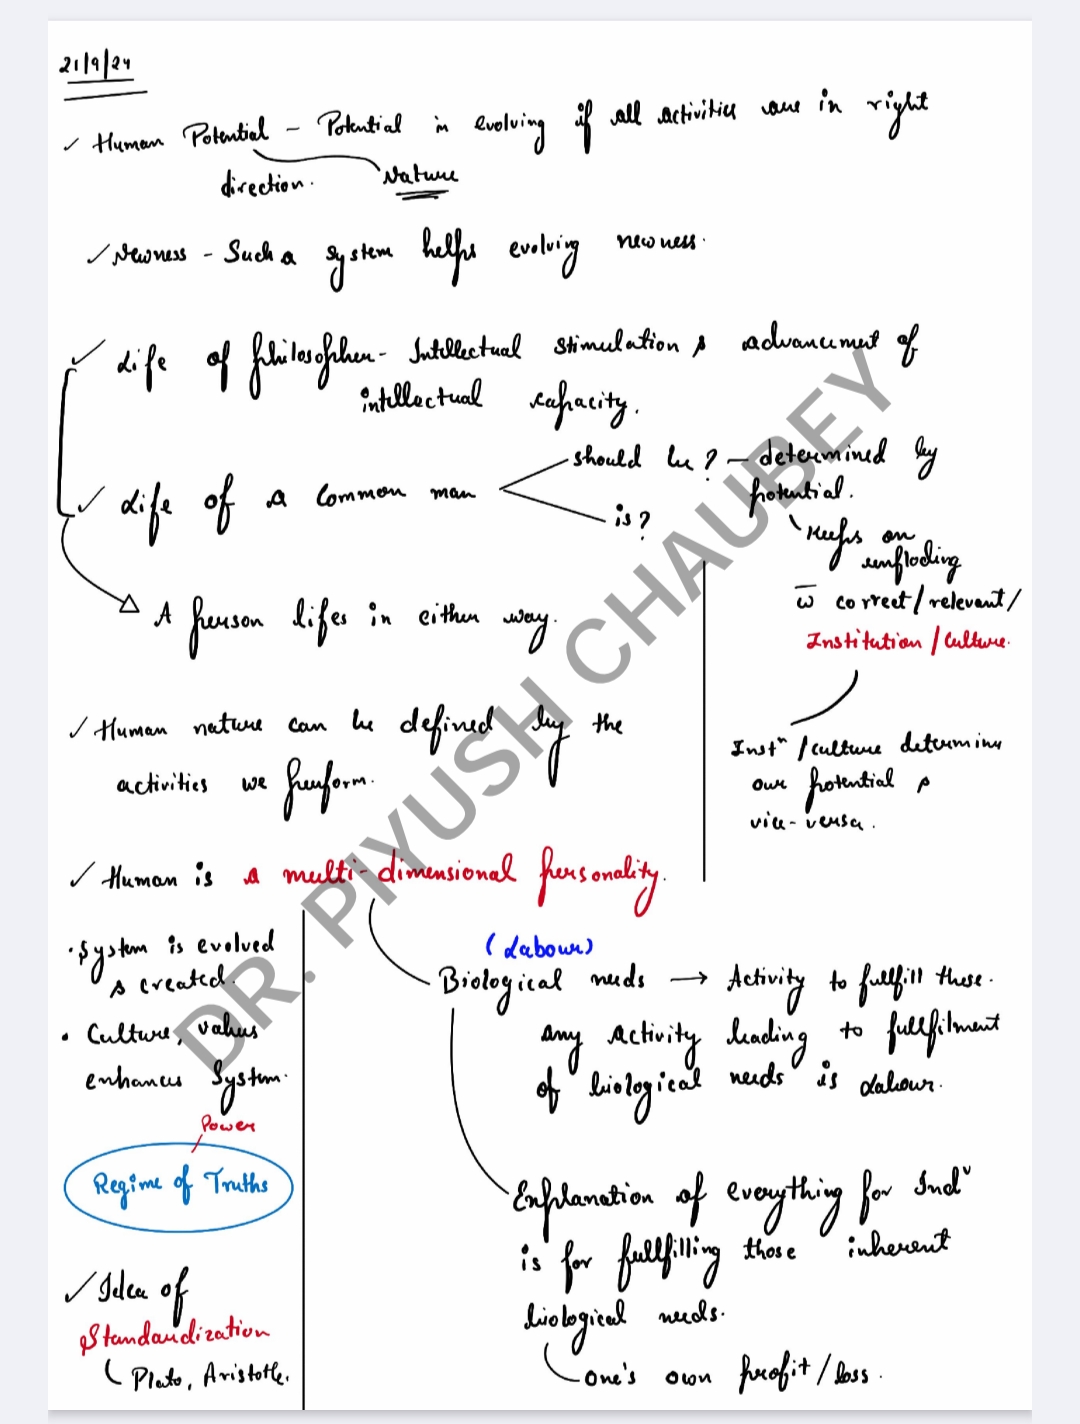 21/9/24
✓ Human Potential - Potential in evolving if all activities are in right
direction. Nature
✓ Newness - Such a system helps evolving newness.
✓ Life of philosopher - Intellectual stimulation & advancement of
intellectual capacity.
✓ Life of a common man
should be? - determined by
potential.
is?
Keeps on
unfolding
w̅ correct / relevant /
Institution / Culture.
Instⁿ / culture determine
our potential &
vice-versa.
A person lifes in either way.
✓ Human nature can be defined by the
activities we perform.
✓ Human is a multi-dimensional personality.
• System is evolved
& created.
• Culture, values
enhances System.
Power
Regime of Truths
✓ Idea of
Standardization
Plato, Aristotle.
(Labour)
Biological needs → Activity to fullfill these.
any activity leading to fullfilment
of biological needs is Labour.
Explanation of everything for Indᵛ
is for fullfilling those inherent
biological needs.
one's own profit / loss.
DR. PIYUSH CHAUBEY